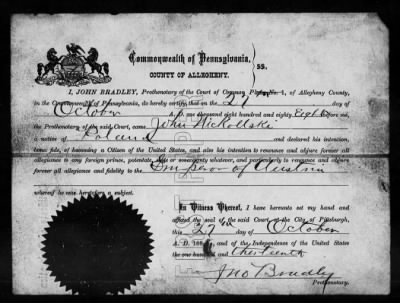 Commonwealth of Pennsylvania,
COUNTY OF ALLEGHENY.
SS.
I, JOHN BRADLEY, Prothonotary of the Court of Common Pleas, No. 1, of Allegheny County,
in the Commonwealth of Pennsylvania, do hereby certify, that on the 27th day of
October A. D. one thousand eight hundred and eighty Eight before me,
the Prothonotary of the said Court, came John
a native of Poland and declared his intention,
bona fide, of becoming a Citizen of the United States, and also his intention to renounce and abjure forever all
allegiance to any foreign prince, potentate, State or sovereignty whatever, and particularly to renounce and abjure forever
all allegiance and fidelity to the Emperor of Austria
whereof he was heretofore a subject.
In Witness Whereof, I have hereunto set my hand and
affixed the seal of the said Court, at the City of Pittsburgh,
this 27th day of October
A. D. 188 and of the Independence of the United States
the one hundred and thirteenth
Jno Bradley
Prothonotary.